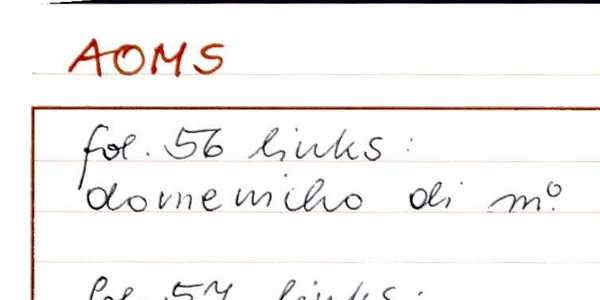 AOMS
fol. 56 links:
domenicho di mº.
fol. 57 links: